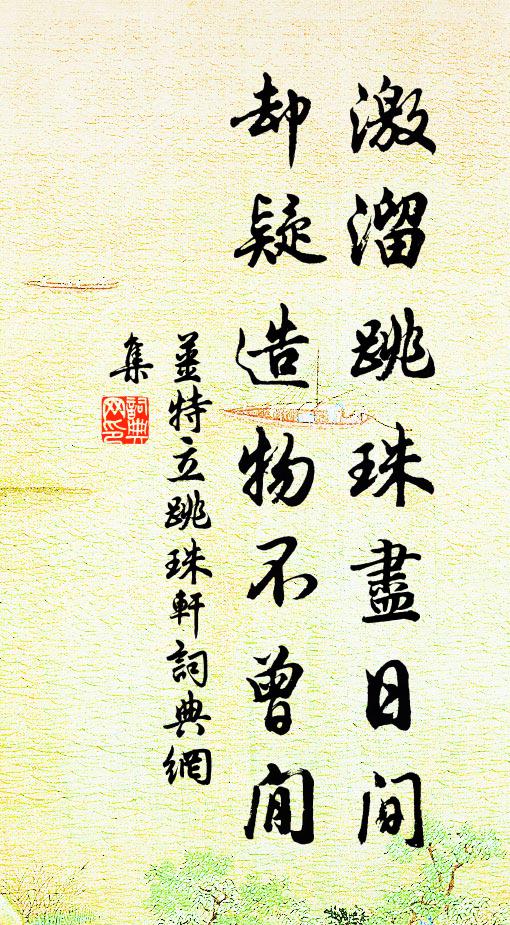 激溜跳珠盡日間
却疑造物不曾閒
薑特立跳珠軒詞典網
集
詞典
网印